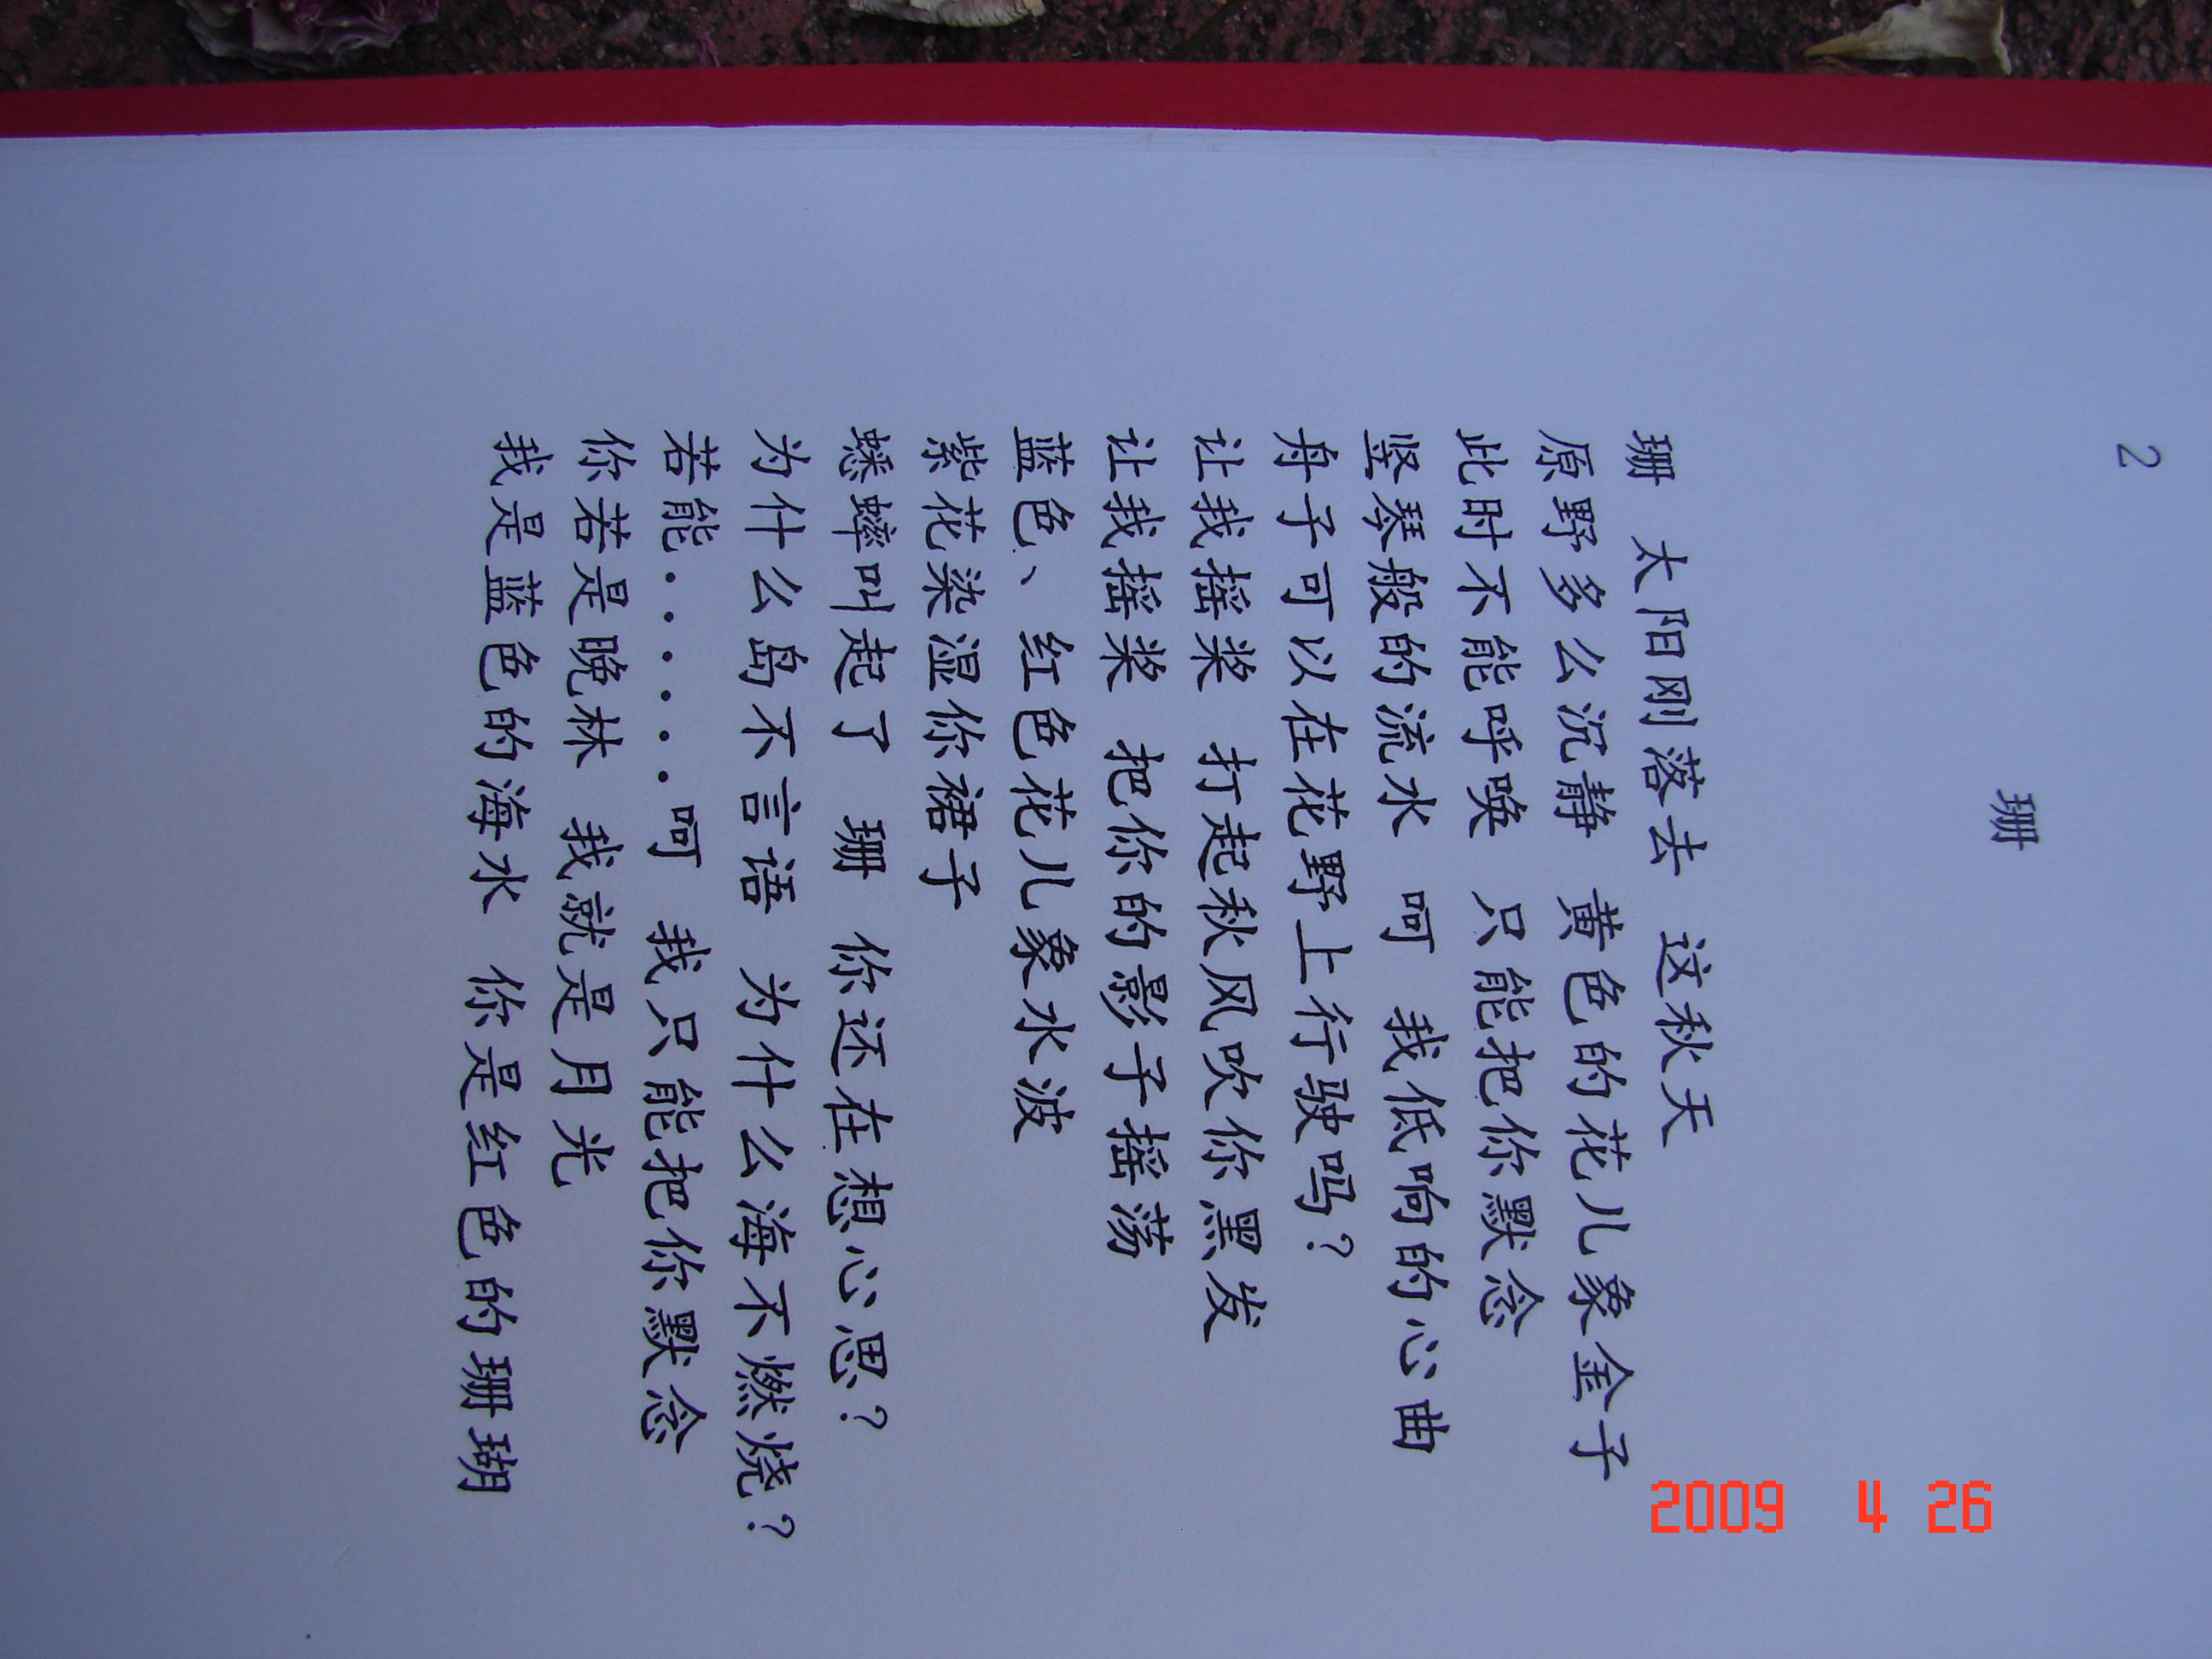 2
珊
珊 太阳刚落去 这秋天
原野多么沉静 黄色的花儿象金子
此时不能呼唤 只能把你默念
竖琴般的流水 呵 我低响的心曲
舟子可以在花野上行驶吗？
让我摇桨 打起秋风吹你黑发
让我摇桨 把你的影子摇荡
蓝色、红色花儿象水波
紫花染湿你裙子
蟋蟀叫起了 珊 你还在想心思？
为什么岛不言语 为什么海不燃烧？
若能······呵 我只能把你默念
你若是晚林 我就是月光
我是蓝色的海水 你是红色的珊瑚
2009 4 26